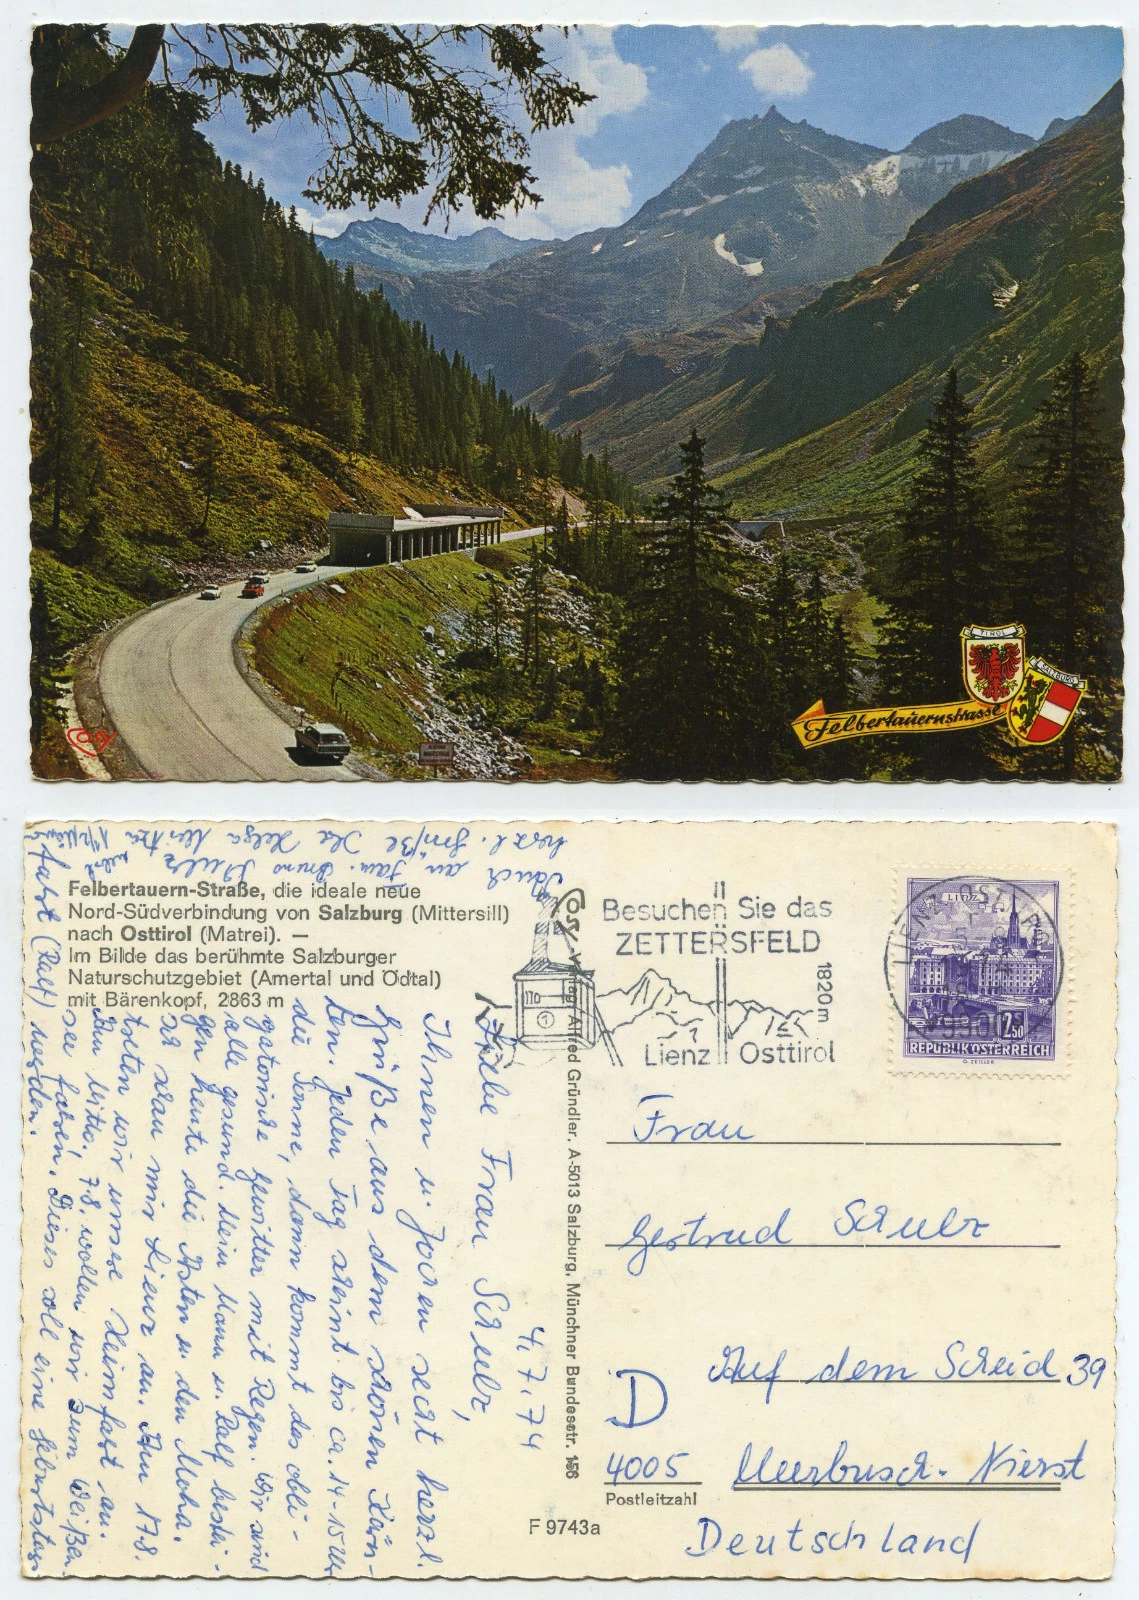 TIROL
SALZBURG
Felbertauernstrasse
Cosy
Felbertauern-Straße, die ideale neue
Nord-Südverbindung von Salzburg (Mittersill)
nach Osttirol (Matrei). —
Im Bilde das berühmte Salzburger
Naturschutzgebiet (Amertal und Ödtal)
mit Bärenkopf, 2863 m
4.7.74
Liebe Frau Schulz,
Ihnen u. Jochen recht herzl.
Grüße aus dem schönen Kärn-
ten. Jeden Tag scheint bis ca. 14-15 Uhr
die Sonne, dann kommt das obli-
gatorische Gewitter mit Regen. Wir sind
alle gesund. Mein Mann u. Ralf bestei-
gen heute die Asten u. den Mocha.
Ich schau mir Lienz an. Am 17.8.
treten wir unsere Heimfahrt an.
Am Mittw. 7.8. wollen wir zum Weißen-
see fahren. Dieses soll eine Geburtstags-
fahrt (Ralf) werden.
herzl. Grüße Ihre Helga
auch an Fam. Bruno Schulz
Cosy-Verlag Alfred Gründler, A-5013 Salzburg, Münchner Bundesstr. 156
F 9743a
Besuchen Sie das
ZETTERSFELD
1820m
Lienz Osttirol
LIENZ, OSTTIROL
9900
LINZ
2.50
REPUBLIK ÖSTERREICH
G. ZEILLER
Frau
Gertrud Schulz
Auf dem Scheid 39
D
4005 Meerbusch-Nierst
Postleitzahl
Deutschland